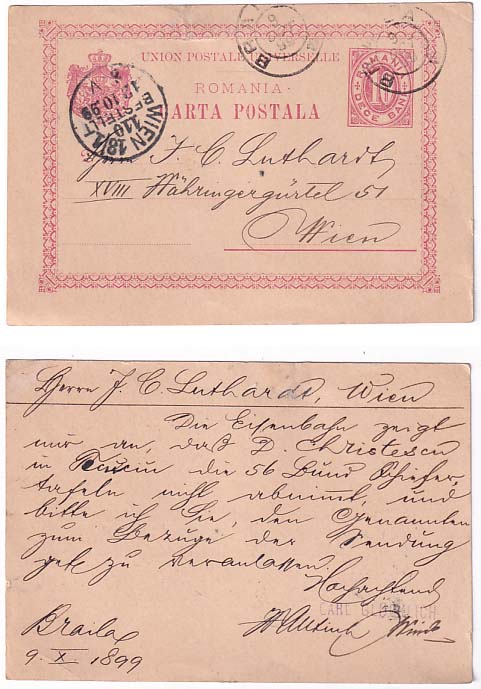 UNION POSTALE UNIVERSELLE
ROMANIA
CARTA POSTALA
ROMANIA
10
DIECE BANI
WIEN 18/1
110
BESTELLT
12.10.99
J. C. Luthardt
XVIII Währingergürtel 51
Wien
Herrn J. C. Luthardt, Wien
Die Eisenbahn zeigt
mir an, daß D. Christescu
in die 56 Bund Schiefer-
tafeln nicht abnimt, und
bitte ich Sie, den Genannten
zum Bezuge der Sendung
zu veranlassen.
Hochachtend
CARL
Braila
9. X. 1899